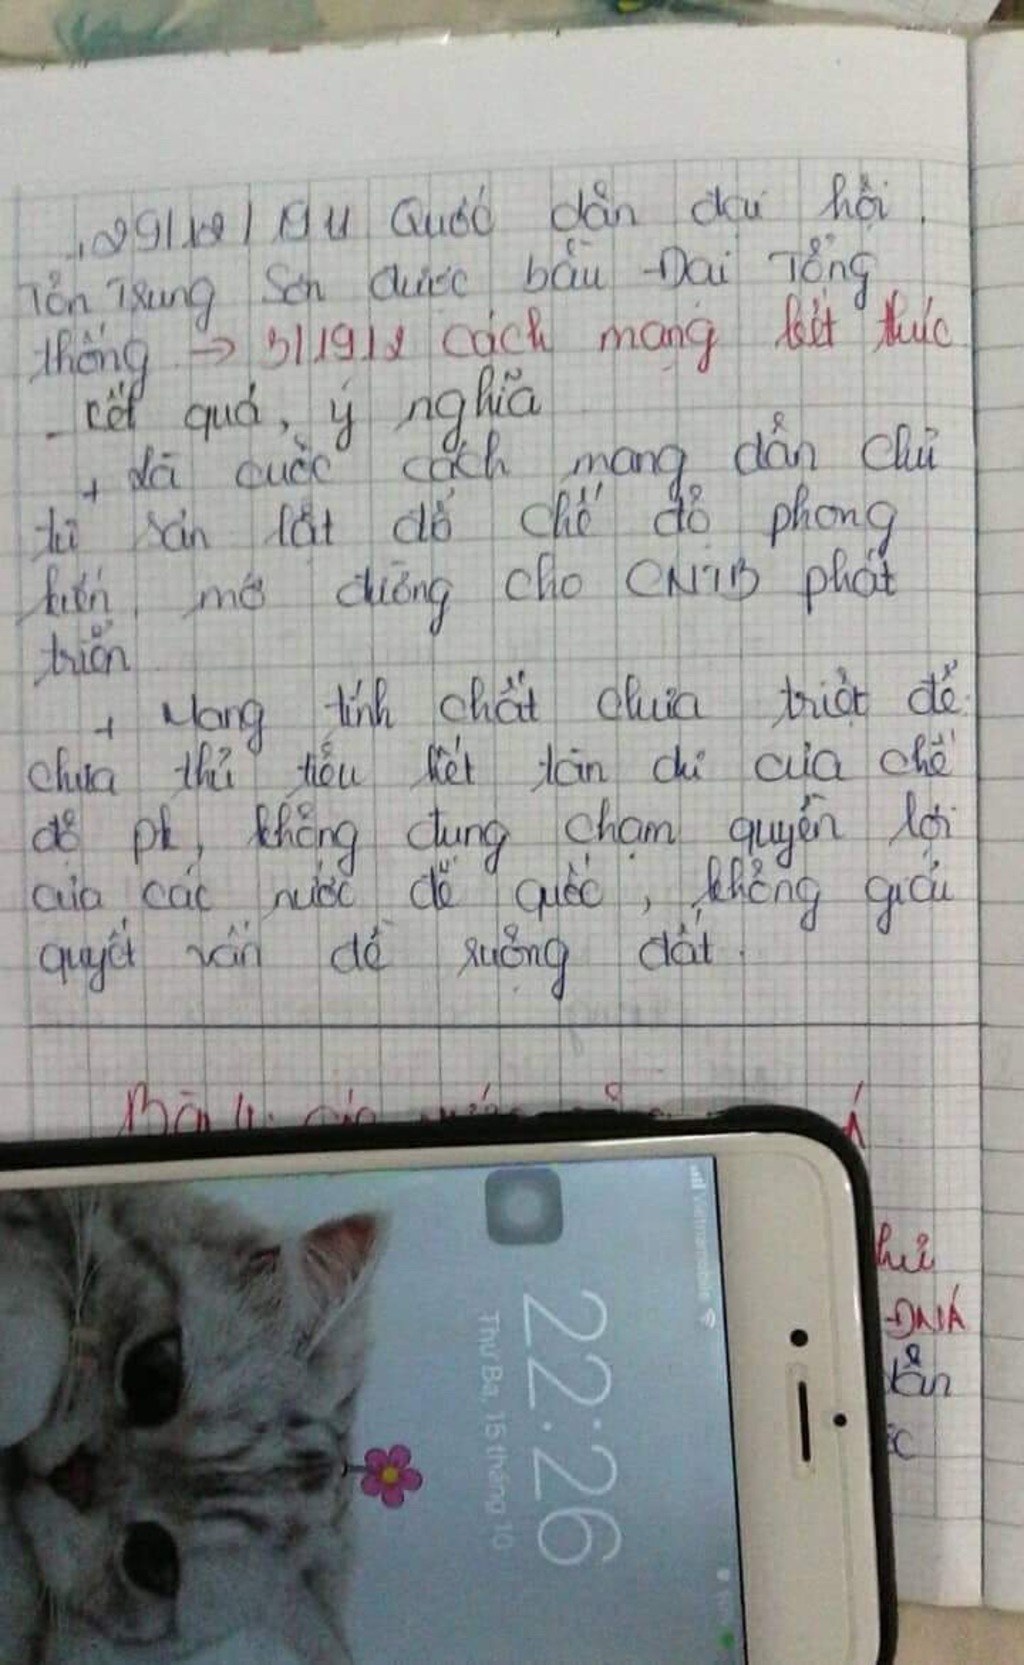 29/12/1911 Quốc dân đại hội.
Tôn Trung Sơn được bầu Đại Tổng
thống → 3/1912 cách mạng kết thúc
- Kết quả, ý nghĩa
+ Là cuộc cách mạng dân chủ
tư sản lật đổ chế độ phong
kiến, mở đường cho CNTB phát
triển
+ Mang tính chất chưa triệt để
chưa thủ tiêu hết tàn dư của chế
độ pk, không đụng chạm quyền lợi
của các nước đế quốc, không giải
quyết vấn đề ruộng đất.
Bài 4: các nước
ĐNÁ
Vietnamobile
22:26
Thứ Ba, 15 tháng 10